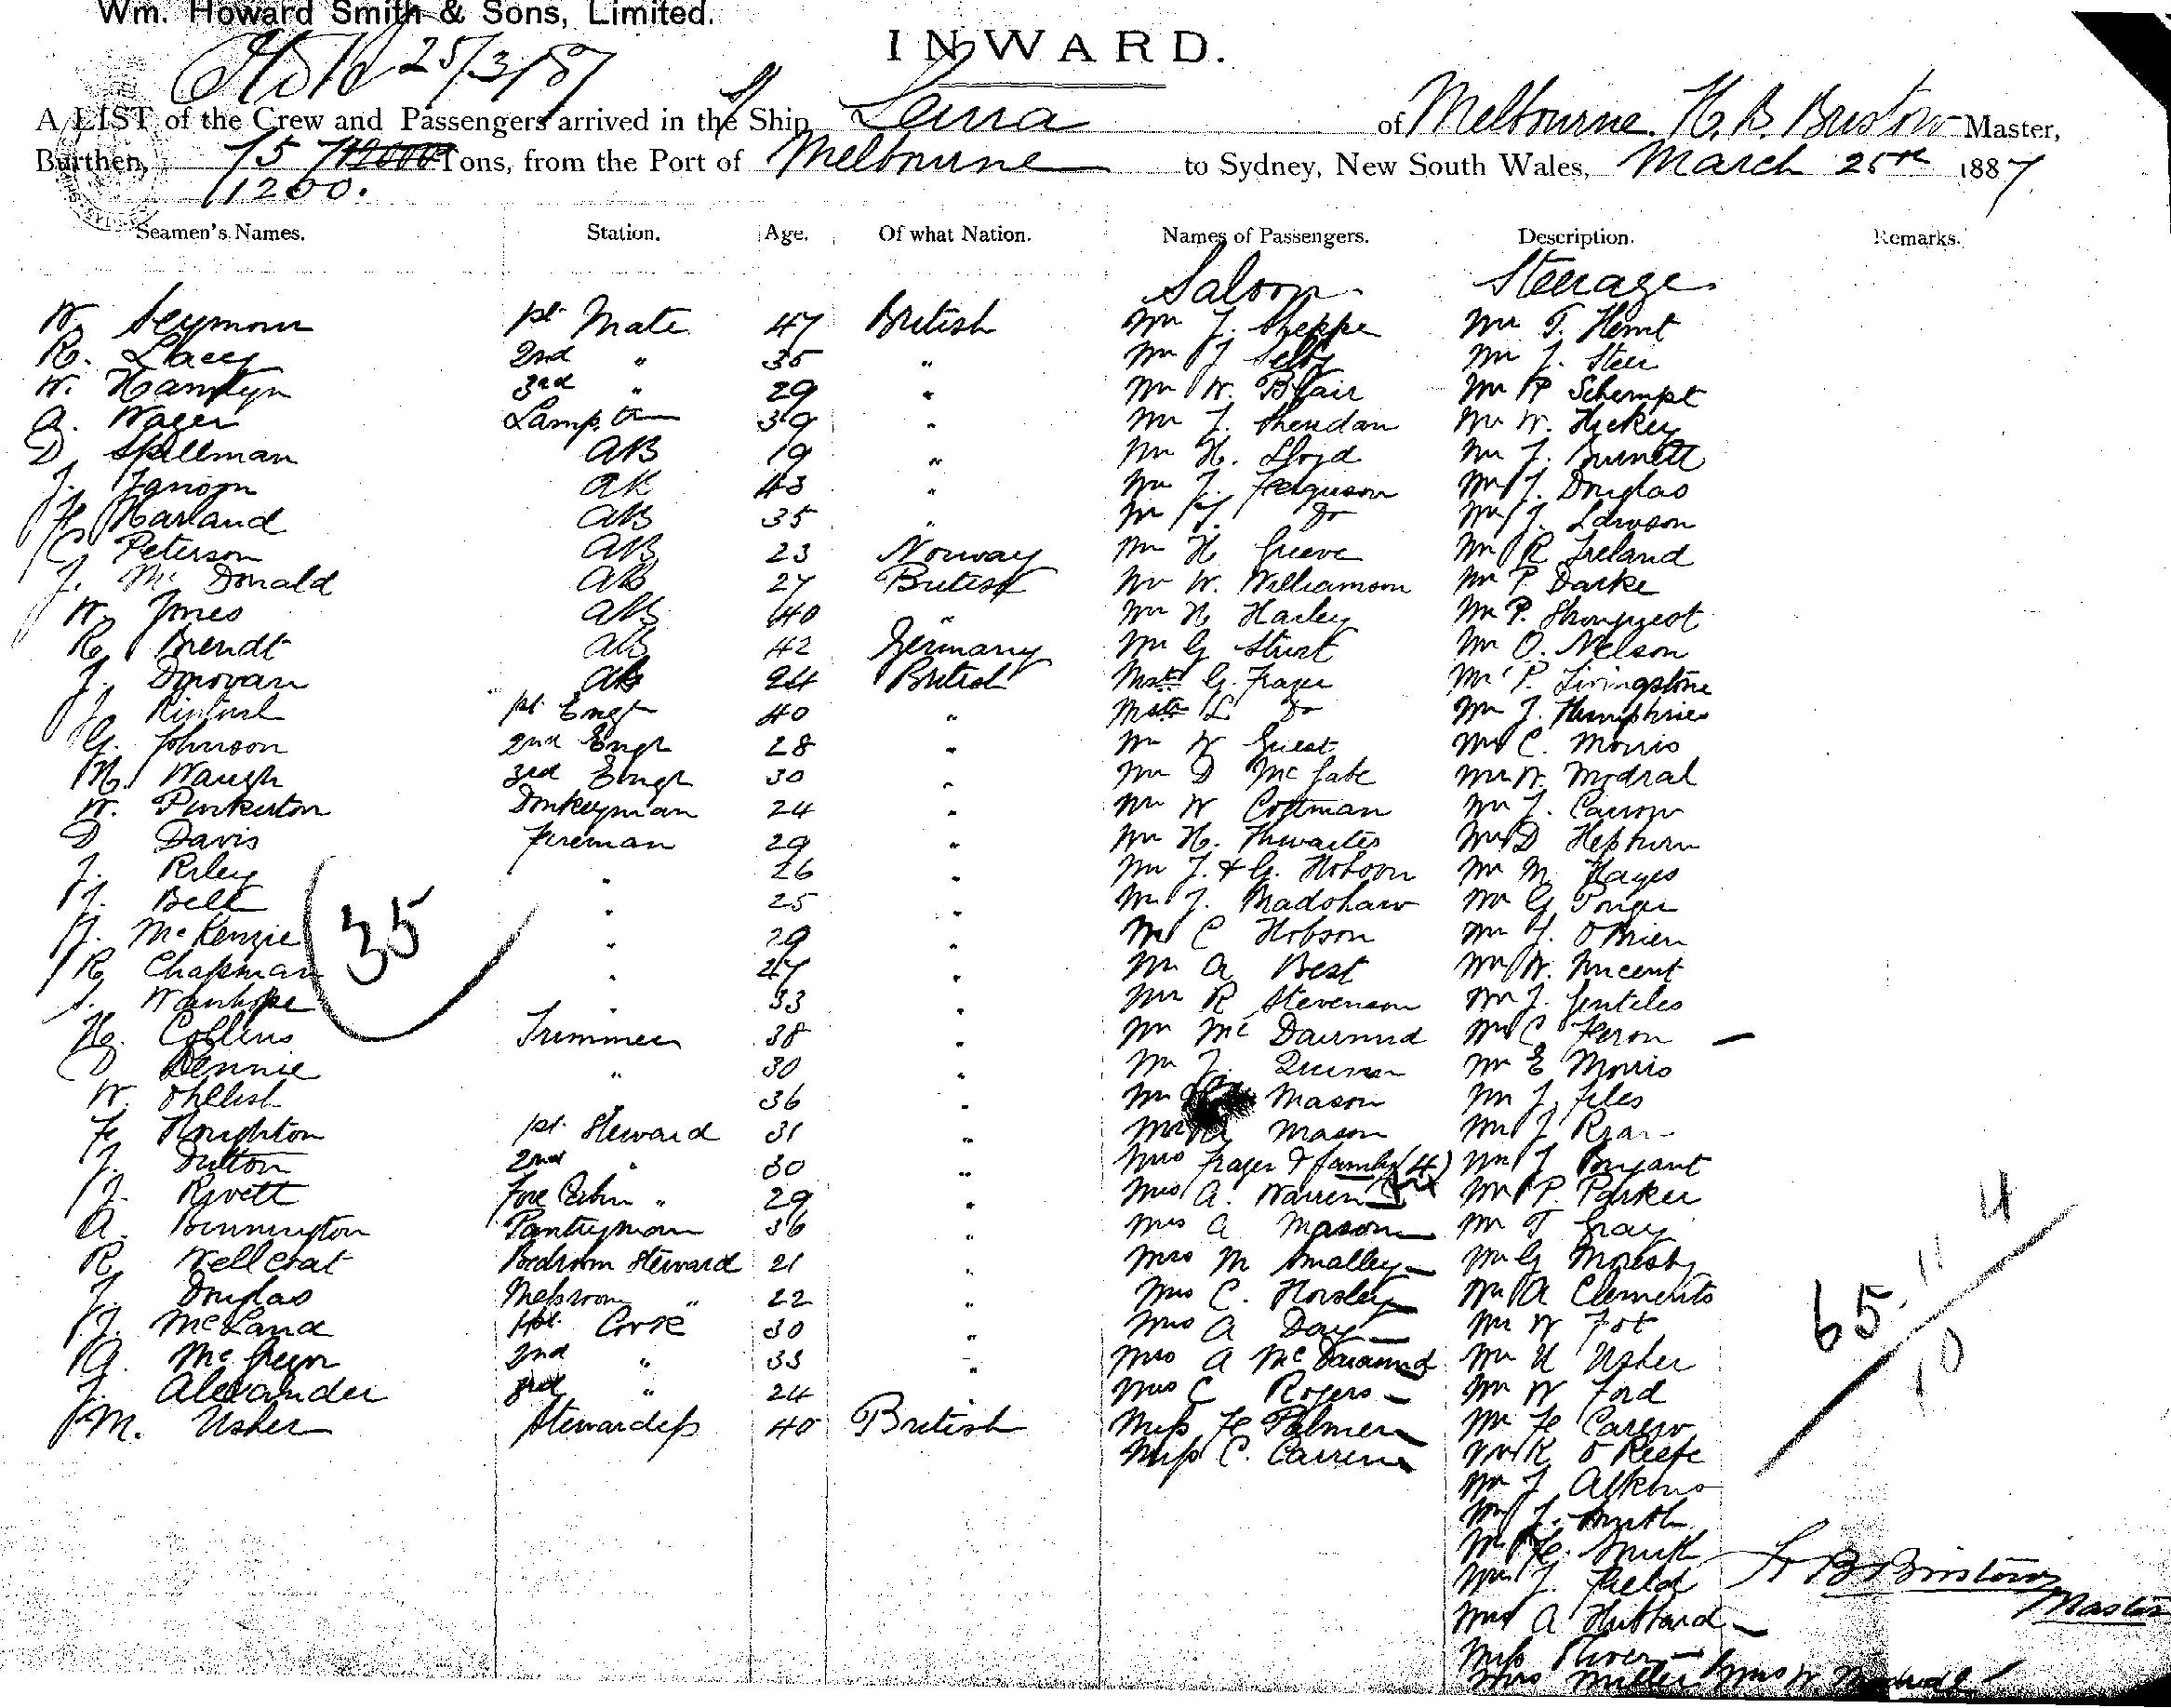 Wm. Howard Smith & Sons, Limited.
25/3/87
INWARD.
A LIST of the Crew and Passengers arrived in the Ship of Melbourne. H. B. Bristow Master,
Burthen, 757 Tons, from the Port of Melbourne to Sydney, New South Wales, March 25th 1887
1200.
Seamen's Names. Station. Age. Of what Nation. Names of Passengers. Description. Remarks.
Saloon. Steerage.
W. Seymour 1st Mate 47 British Mr J. Mr T.
R. Lacey 2nd " 35 " Mr J Selby Mr J. Steer
W. Hamlyn 3rd " 29 " Mr W. Blair Mr P Schempt
A. Wager Lamp 39 " Mr J. Sheridan Mr W. Hickey
D Spillman AB 19 " Mr H. Lloyd Mr J. Burnett
J. AB 43 " Mr J. Ferguson Mr J. Douglas
F Harland AB 35 " Mr J. Do Mr J. Lawson
C. Peterson AB 23 Norway Mr H Greeve Mr R Ireland
J. McDonald AB 27 British Mr W. Williamson Mr P Darke
W. Jones AB 40 " Mr H Harley Mr P.
R Brendt AB 42 Germany Mr G Sturt Mr O. Nelson
J. Donovan AB 24 British Mstr G. Frazer Mr P. Livingstone
J. 1st Engr 40 " Mstr L Do Mr J. Humphries
G. Johnson 2nd Engr 28 " Mr W Guest Mr C. Morris
M. Waugh 3rd Engr 30 " Mr D McCabe Mr W. Modral
W. Pinkerton Donkeyman 24 " Mr W Cottman Mr J. Carrow
D Davis Fireman 29 " Mr H. Thwaites Mr D Hepburn
J. Riley " 26 " Mr J. & G. Hobson Mr M Hayes
J. Bell " 25 " Mr J. Bradshaw Mr G
J. McKenzie " 29 " Mr C Hobson Mr J. O'Brien
35
R Chapman " 27 " Mr A Best Mr W. Vincent
S. Wanhope " 33 " Mr R Stevenson Mr J. Gentiles
H. Collins Trimmer 38 " Mr Mc Mr C Feron
D Rennie " 30 " Mr J. Mr E Morris
W. " 36 " Mr Mason Mr J. Files
F. Houghton 1st Steward 31 " Mr Mason Mr J Ryan
J. Dutton 2nd " 30 " Mrs Frazer & family (4) Mr J Bryant
J. Rivett Fore Cabin " 29 " Mrs A. Warren Mr P. Parker
A. Binnington Pantryman 36 " Mrs A Mason Mr T Gray
R Wellcoat Bedroom Steward 21 " Mrs M Smalley Mr G Moresby
J. Douglas Messroom " 22 " Mrs C. Horsley Mr A Clements
J. McLand 1st Cook 30 " Mrs A Day Mr W Fot
A. McGregor 2nd " 33 " Mrs A Mc Mr U Usher
J. Alexander 3rd " 24 Mrs C Rogers Mr W Ford
M. Usher Stewardess 40 British Miss F Palmer Mr F Carew
Miss C. Carrena Mr K O'Keefe
Mr J Atkins
Mr J. Smith
Mr F. Smith
Mr J. Field
Mrs A Hubbard
Miss
Mrs Miller Mrs W.
65 11 4
10
H B Bristow
Master